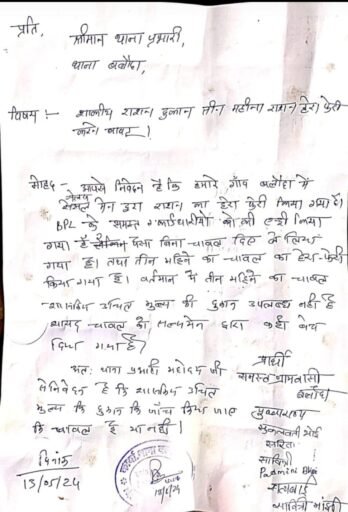 प्रति,
श्रीमान थाना प्रभारी,
थाना बलौदा,
विषय :- शासकीय राशन दुकान तीन महीना राशन हेरा फेरी
करने बाबत्।
महोदय - आपसे निवेदन है कि हमारे गाँव बलौदा में
सेल्समेन द्वारा राशन का हेरा फेरी किया गया है।
BPL के समस्त कार्डधारीयों को
गया है लेकिन पैसा बिना चावल दिए ले लिया
गया है। तथा तीन महिने का चावल का हेरा-फेरी
किया गया है। वर्तमान में तीन महिने का चावल
शासकीय उचित मूल्य की दुकान उपलब्ध नहीं है
शायद चावल को सेल्समेन द्वारा कही बेच
दिया गया है?
अतः थाना प्रभारी महोदय जी
से निवेदन है कि शासकीय उचित
मूल्य कि दुकान कि जाँच किया जाए
कि चावल है या नही।
प्रार्थी
समस्त ग्रामवासी
बलौदा
सरिता
सावित्री
Padmini Bhoi
सत्यवाई
सावित्री
दिनांक
13/05/24